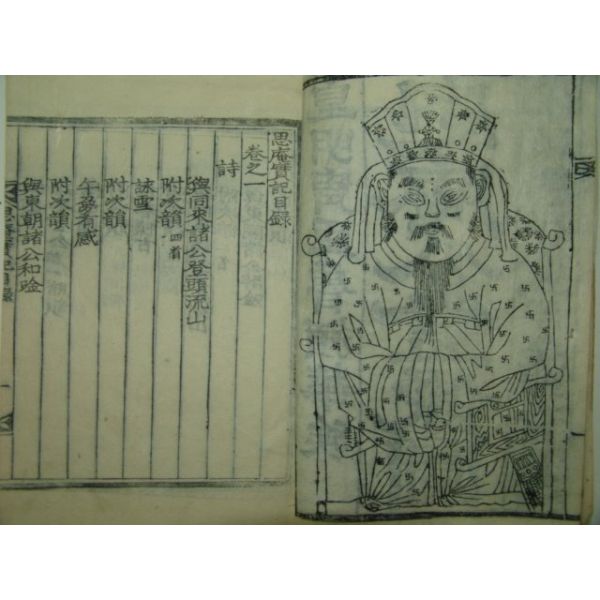 思庵實記目錄
卷之一
詩
與同來諸公登頭流山
附次韻 四首
詠雪
附次韻
午夢有感
與東朝諸公和唫